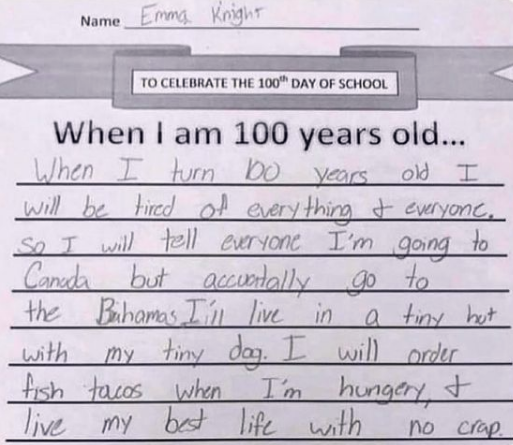 Name Emma Knight
TO CELEBRATE THE 100th DAY OF SCHOOL
When I am 100 years old...
When I turn 100 years old I
will be tired of everything & everyone.
so I will tell everyone I'm going to
Canada but accuatally go to
the Bahamas I'ill live in a tiny hut
with my tiny dog. I will order
fish tacos when I'm hungery, &
live my best life with no crap.